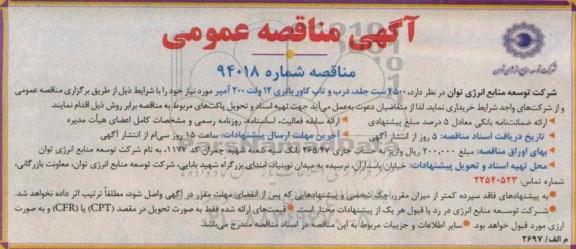 آگهی مناقصه عمومی
مناقصه شماره ۹۴۰۱۸
شرکت توسعه منابع انرژی توان
شرکت توسعه منابع انرژی توان در نظر دارد، ۴۵۰۰ ست جلد، درب و تاپ کاور باتری ۱۲ ولت ۲۰۰ آمپر مورد نیاز خود را با شرایط ذیل از طریق برگزاری مناقصه عمومی
و از شرکت‌های واجد شرایط خریداری نماید. لذا از متقاضیان دعوت به‌عمل می‌آید جهت تهیه اسناد و تحویل پاکت‌های مربوط به مناقصه برابر روش ذیل اقدام نمایند.
• ارائه ضمانتنامه بانکی معادل ۵ درصد مبلغ پیشنهادی • ارائه سابقه فعالیت، اساسنامه، روزنامه رسمی و مشخصات کامل اعضای هیأت مدیره
• تاریخ دریافت اسناد مناقصه: ۵ روز از انتشار آگهی • آخرین مهلت ارسال پیشنهادات: ساعت ۱۵ روز سی‌ام از انتشار آگهی
• بهای اوراق مناقصه: مبلغ ۲۰۰,۰۰۰ ریال واریز به حساب جاری ۲۶۵/۴۷ بانک سپه شعبه شهید جباری کد ۱۱۷۷، به نام شرکت توسعه منابع انرژی توان
• محل تهیه اسناد و تحویل پیشنهادات: خیابان پاسداران، نرسیده به میدان نوبنیاد، ابتدای بزرگراه شهید بابایی، شرکت توسعه منابع انرژی توان، معاونت بازرگانی،
شماره تماس: ۲۲۵۴۰۵۲۳
• به پیشنهادهای فاقد سپرده کمتر از میزان مقرر، چک شخصی و پیشنهادهایی که پس از انقضای مهلت مقرر در آگهی واصل شود، مطلقاً ترتیب اثر داده نخواهد شد.
• شرکت توسعه منابع انرژی در رد یا قبول هر یک از پیشنهادات مختار است • قیمت‌های ارائه شده فقط به صورت تحویل در مقصد (CPT) یا (CFR) و به صورت
ارزی مورد قبول خواهد بود. • سایر اطلاعات و جزییات مربوط به این مناقصه در اسناد مناقصه مندرج می‌باشد.
م الف/ ۲۶۹۷